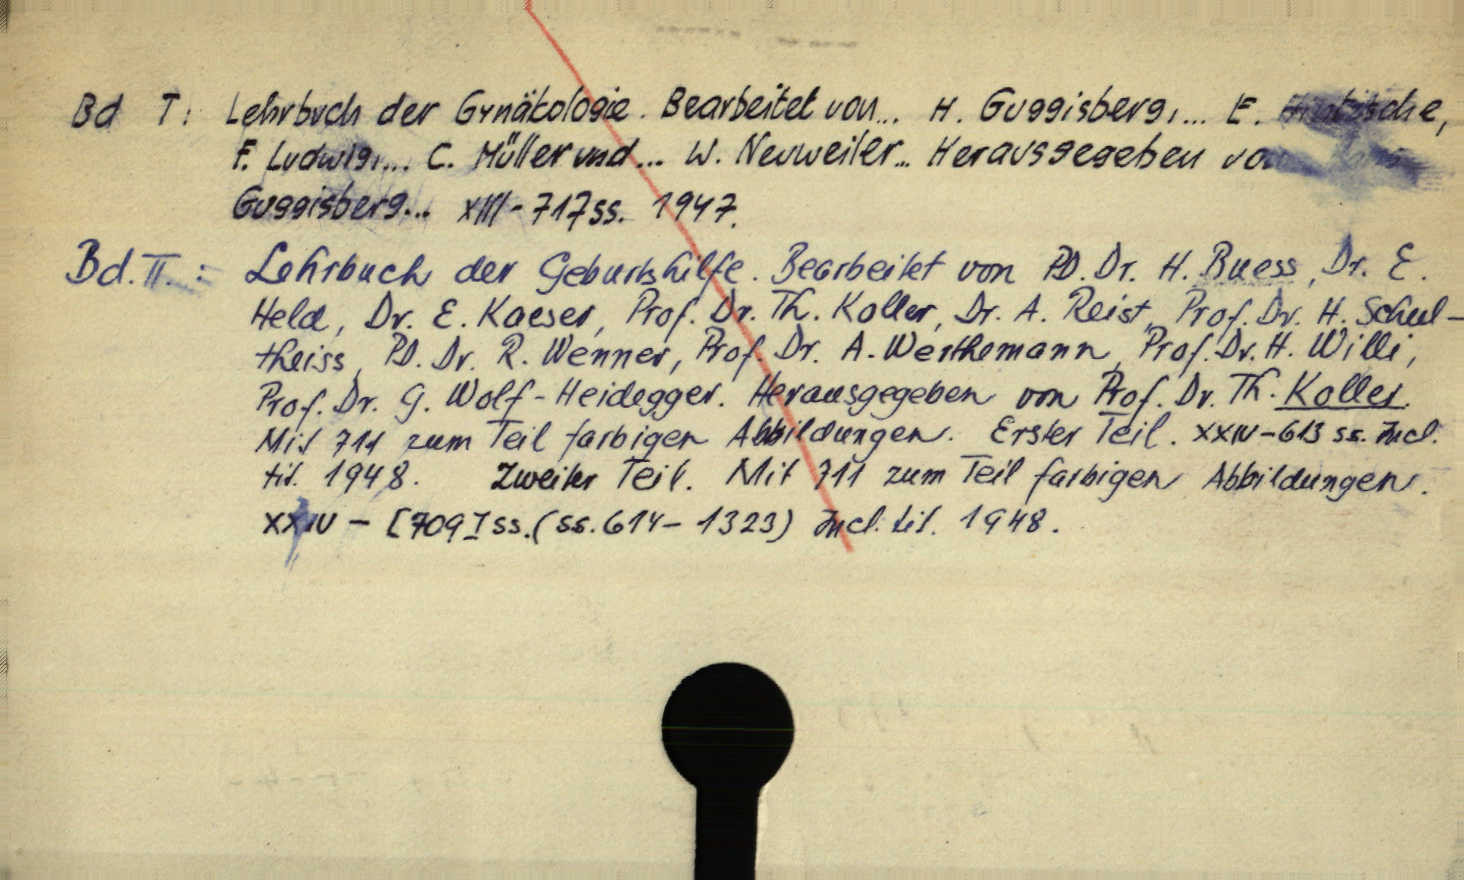 Bd I: Lehrbuch der Gynäkologie. Bearbeitet von... H. Guggisberg,... E.
F. Ludwig,... C. Müller und... W. Neuweiler... Herausgegeben von
Guggisberg... XIII-717ss. 1947.
Bd. II.: Lehrbuch der Geburtshilfe. Bearbeitet von PD. Dr. H. Buess, Dr. E.
Held, Dr. E. Kaeser, Prof. Dr. Th. Koller, Dr. A. Reist, Prof. Dr. H. Schul-
theiss, PD. Dr. R. Wenner, Prof. Dr. A. Werthemann, Prof. Dr. H. Willi,
Prof. Dr. G. Wolf-Heidegger. Herausgegeben von Prof. Dr. Th. Koller.
Mit 711 zum Teil farbigen Abbildungen. Erster Teil. XXIV-613 ss. Incl.
tit. 1948. Zweiter Teil. Mit 711 zum Teil farbigen Abbildungen.
XXIV - [709] ss. (ss. 614-1323) Incl. tit. 1948.